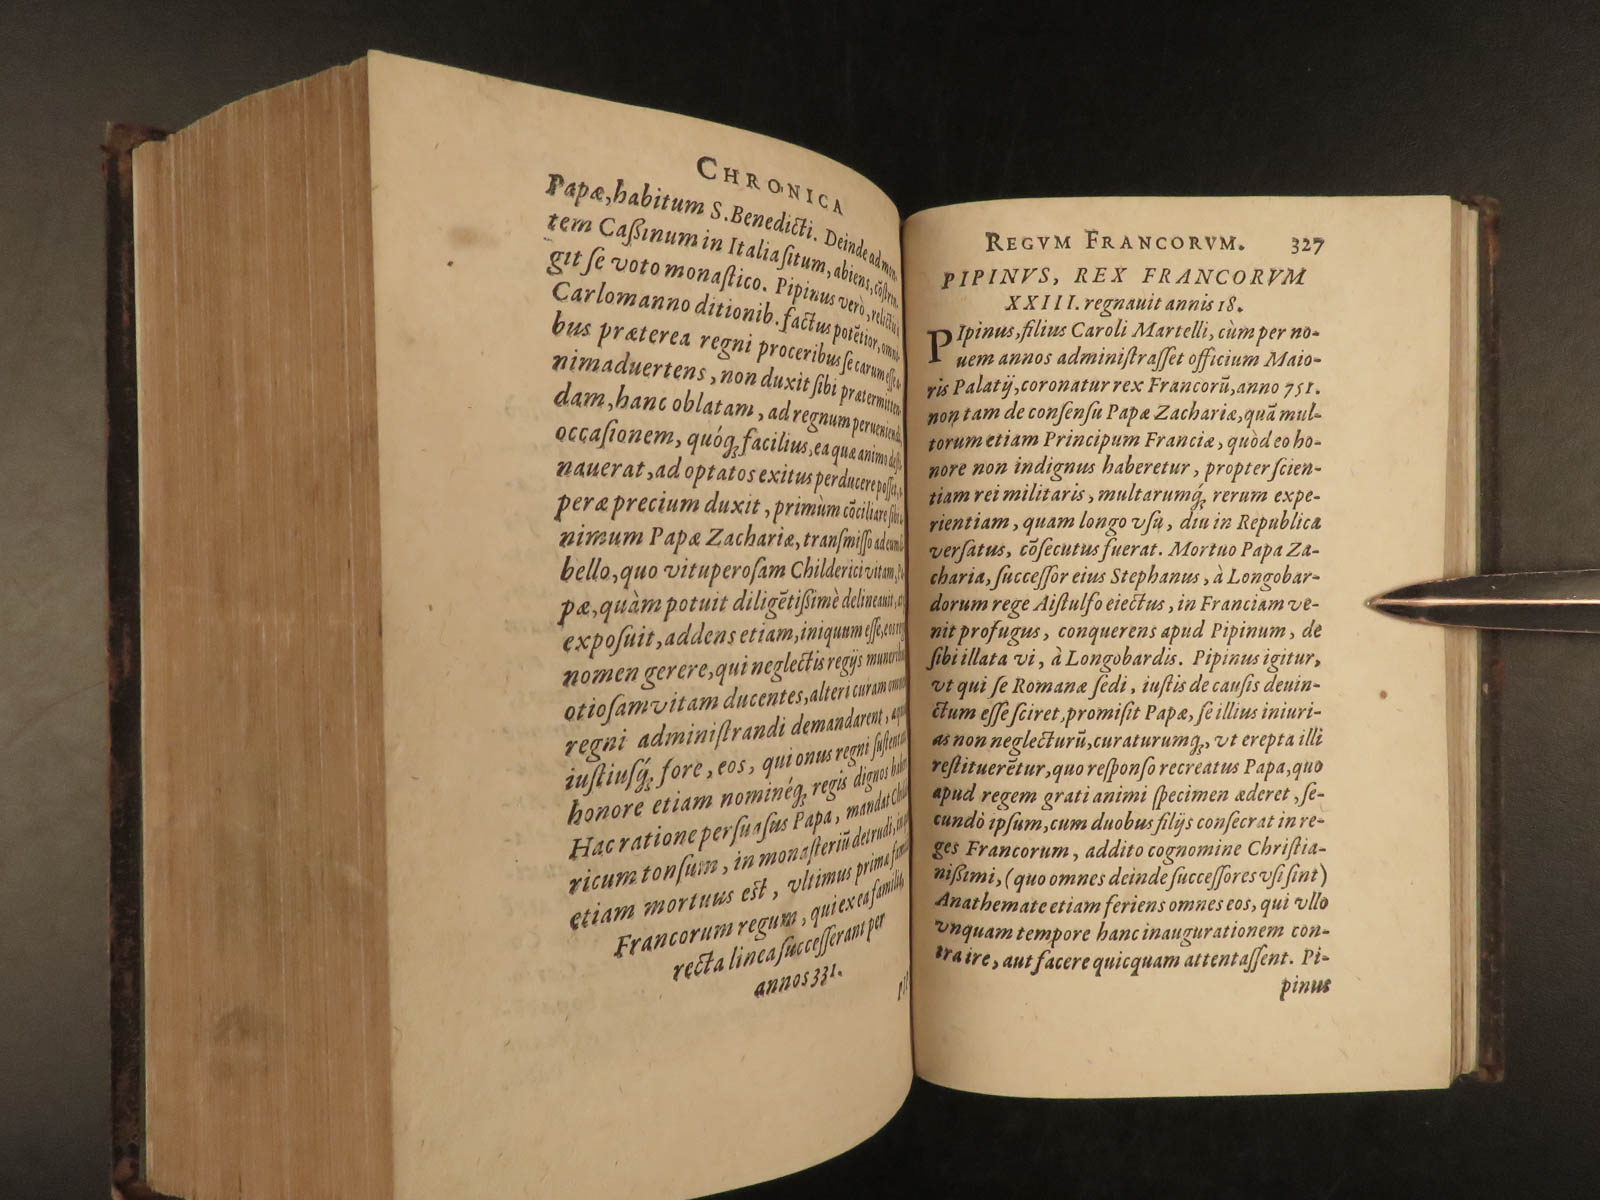 CHRONICA
Papæ, habitum S. Benedicti. Deinde ad mon-
tem Caßinum in Italia ſitum, abiens, cõſtrin-
git ſe voto monaſtico. Pipinus verò, relictis
Carlomanno ditionib. factus potẽtior, omni-
bus præterea regni proceribus ſe carum eſſe a-
nimaduertens, non duxit ſibi prætermitten-
dam, hanc oblatam, ad regnum perueniendi,
occaſionem, quóq́ꝫ facilius, ea quæ animo deſti-
nauerat, ad optatos exitus perducere poſſet,
peræ precium duxit, primùm cõciliare ſibi
nimum Papæ Zachariæ, tranſmiſſo ad eum
bello, quo vituperoſam Childerici vitam,
pæ, quàm potuit diligẽtißimè delineauit,
expoſuit, addens etiam, iniquum eſſe, eos
nomen gerere, qui neglectis regijs muneribus
otioſam vitam ducentes, alteri curam
regni adminiſtrandi demandarent,
iuſtiuſq́ꝫ fore, eos, qui onus regni
honore etiam nomineq́ꝫ regis dignos
Hac ratione perſuaſus Papa, mandat
ricum tonſum, in monaſteriũ detrudi,
etiam mortuus eſt, vltimus prima
Francorum regum, qui ex ea familia,
recta linea ſucceſſerant per
annos 331.
REGVM FRANCORVM. 327
PIPINVS, REX FRANCORVM
XXIII. regnauit annis 18.
PIpinus, filius Caroli Martelli, cùm per no-
uem annos adminiſtraſſet officium Maio-
ris Palatij, coronatur rex Francorũ, anno 751.
non tam de conſenſu Papæ Zachariæ, quã mul-
torum etiam Principum Franciæ, quòd eo ho-
nore non indignus haberetur, propter ſcien-
tiam rei militaris, multarumq́ꝫ rerum expe-
rientiam, quam longo vſu, diu in Republica
verſatus, cõſecutus fuerat. Mortuo Papa Za-
charia, ſucceſſor eius Stephanus, à Longobar-
dorum rege Aiſtulfo eiectus, in Franciam ve-
nit profugus, conquerens apud Pipinum, de
ſibi illata vi, à Longobardis. Pipinus igitur,
vt qui ſe Romanæ ſedi, iuſtis de cauſis deuin-
ctum eſſe ſciret, promiſit Papæ, ſe illius iniuri-
as non neglecturũ, curaturumq́ꝫ, vt erepta illi
reſtituerẽtur, quo reſponſo recreatus Papa, quo
apud regem grati animi ſpecimen æderet, ſe-
cundò ipſum, cum duobus filijs conſecrat in re-
ges Francorum, addito cognomine Chriſtia-
nißimi, (quo omnes deinde ſucceſſores vſi ſint)
Anathemate etiam feriens omnes eos, qui vllo
vnquam tempore hanc inaugurationem con-
traire, aut facere quicquam attentaſſent. Pi-
pinus